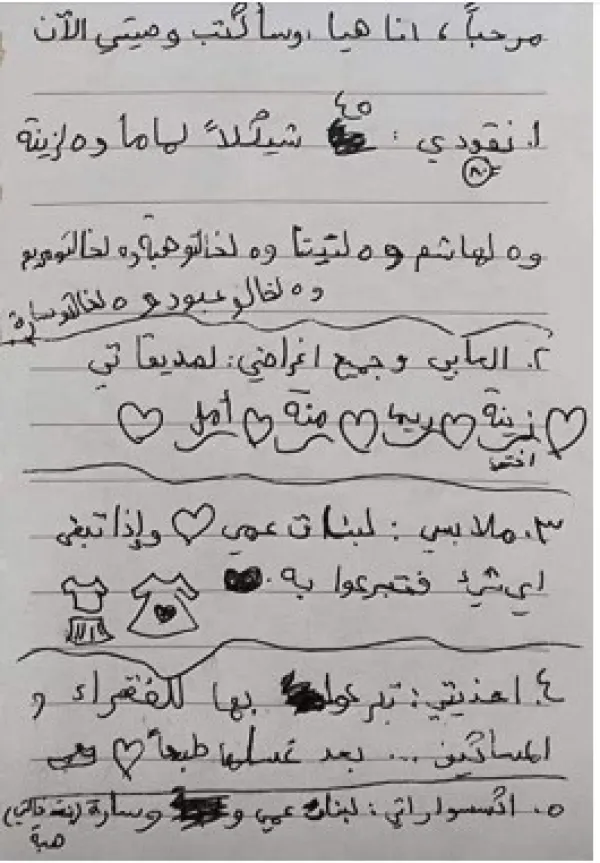 مرحباً، انا هيا، وسأكتب وصيتي الآن
٤٥
١. نقودي: شيكلاً لماما و٥ لزينة
٨٠
و٥ لهاشم و٥ لتيتا و٥ لخالتو هبة و٥ لخالتو مريم
و٥ لخالو عبود و٥ لخالتو سارة
٢. العابي وجميع اغراضي: لصديقاتي
زينة ريما منة أمل
اختي
٣. ملابسي: لبنات عمي وإذا تبقى
اي شيء فتبرعوا به.
٤. احذيتي: تبرعوا بها للفقراء و
المساكين ... بعد غسلها طبعاً
٥. اكسسواراتي: لبنات عمي و وسارة (بنت خالتي)
هبة